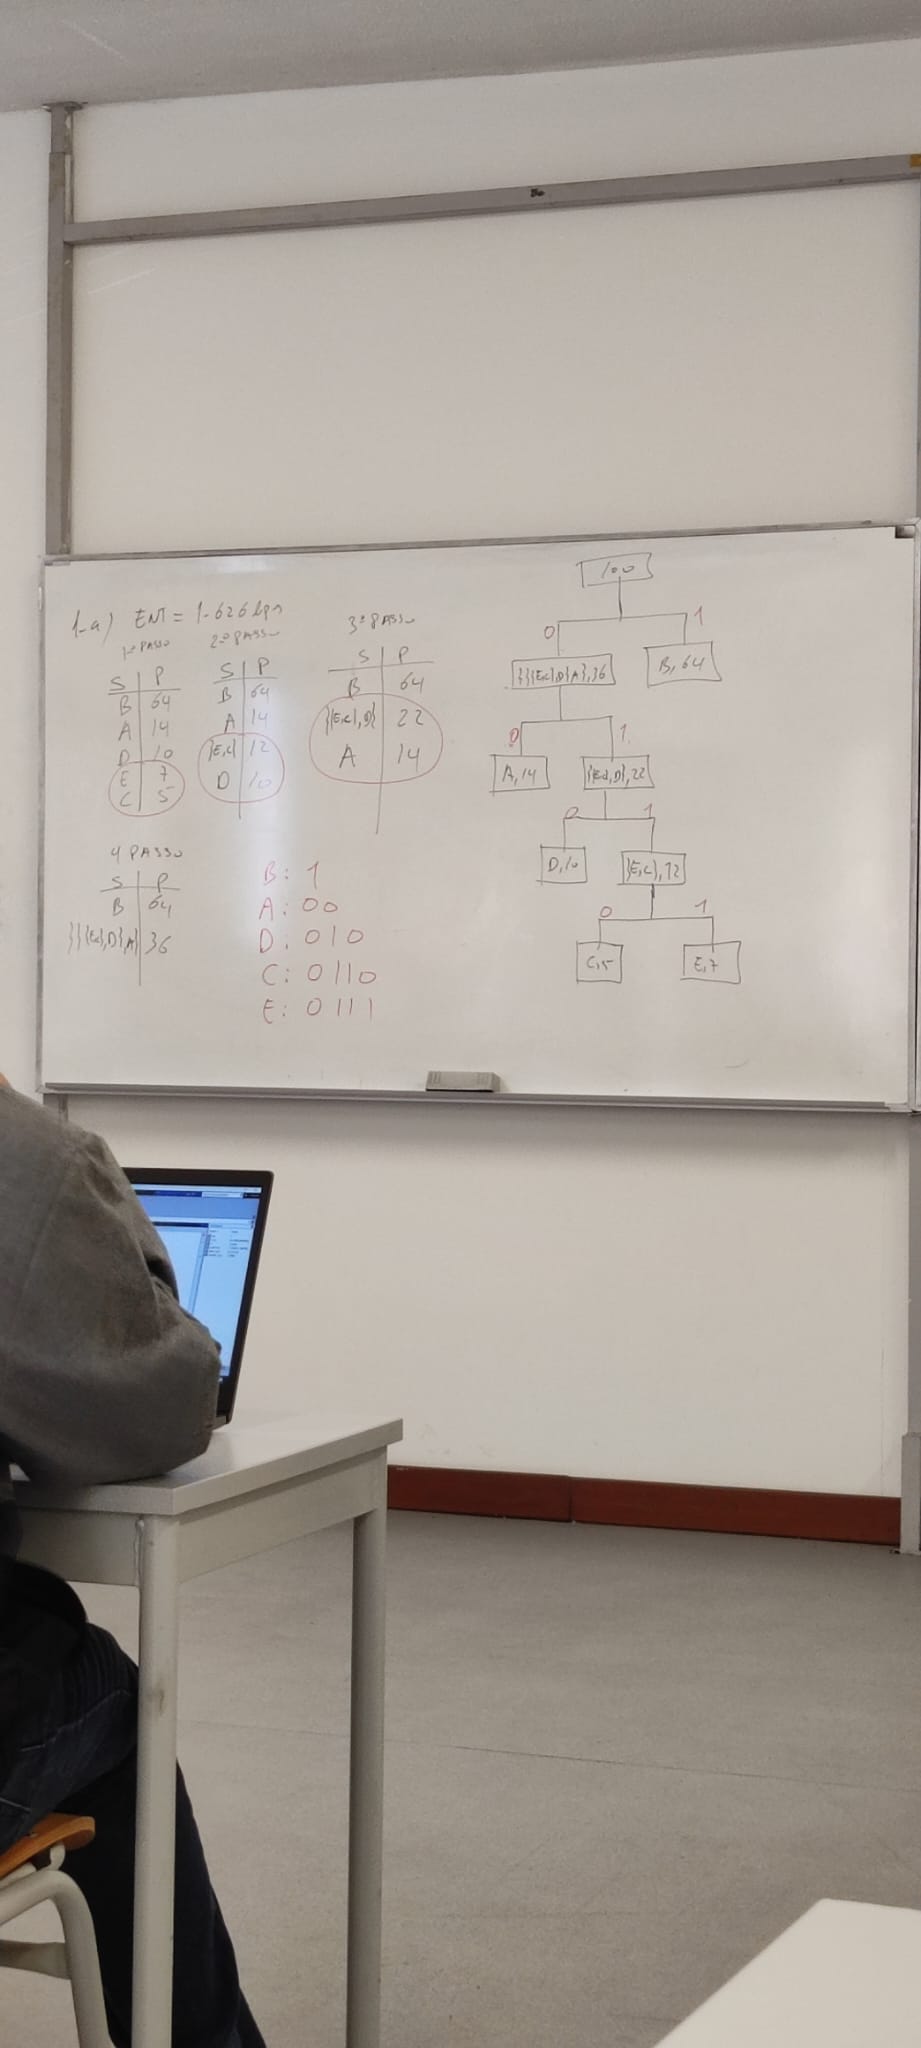 1-a) ENT = 1.626 bps
1º PASSO
S | P
B | 64
A | 14
D | 10
E | 7
C | 5
2º PASSO
S | P
B | 64
A | 14
{E,C} | 12
D | 10
3º PASSO
S | P
B | 64
{{E,C},D} | 22
A | 14
4 PASSO
S | P
B | 64
{{{E,C},D},A} | 36
B: 1
A: 00
D: 010
C: 0110
E: 0111
100
0 1
{{{E,C},D}A},36 B,64
0 1
A,14 {{E,C},D},22
0 1
D,10 {E,C},12
0 1
C,5 E,7